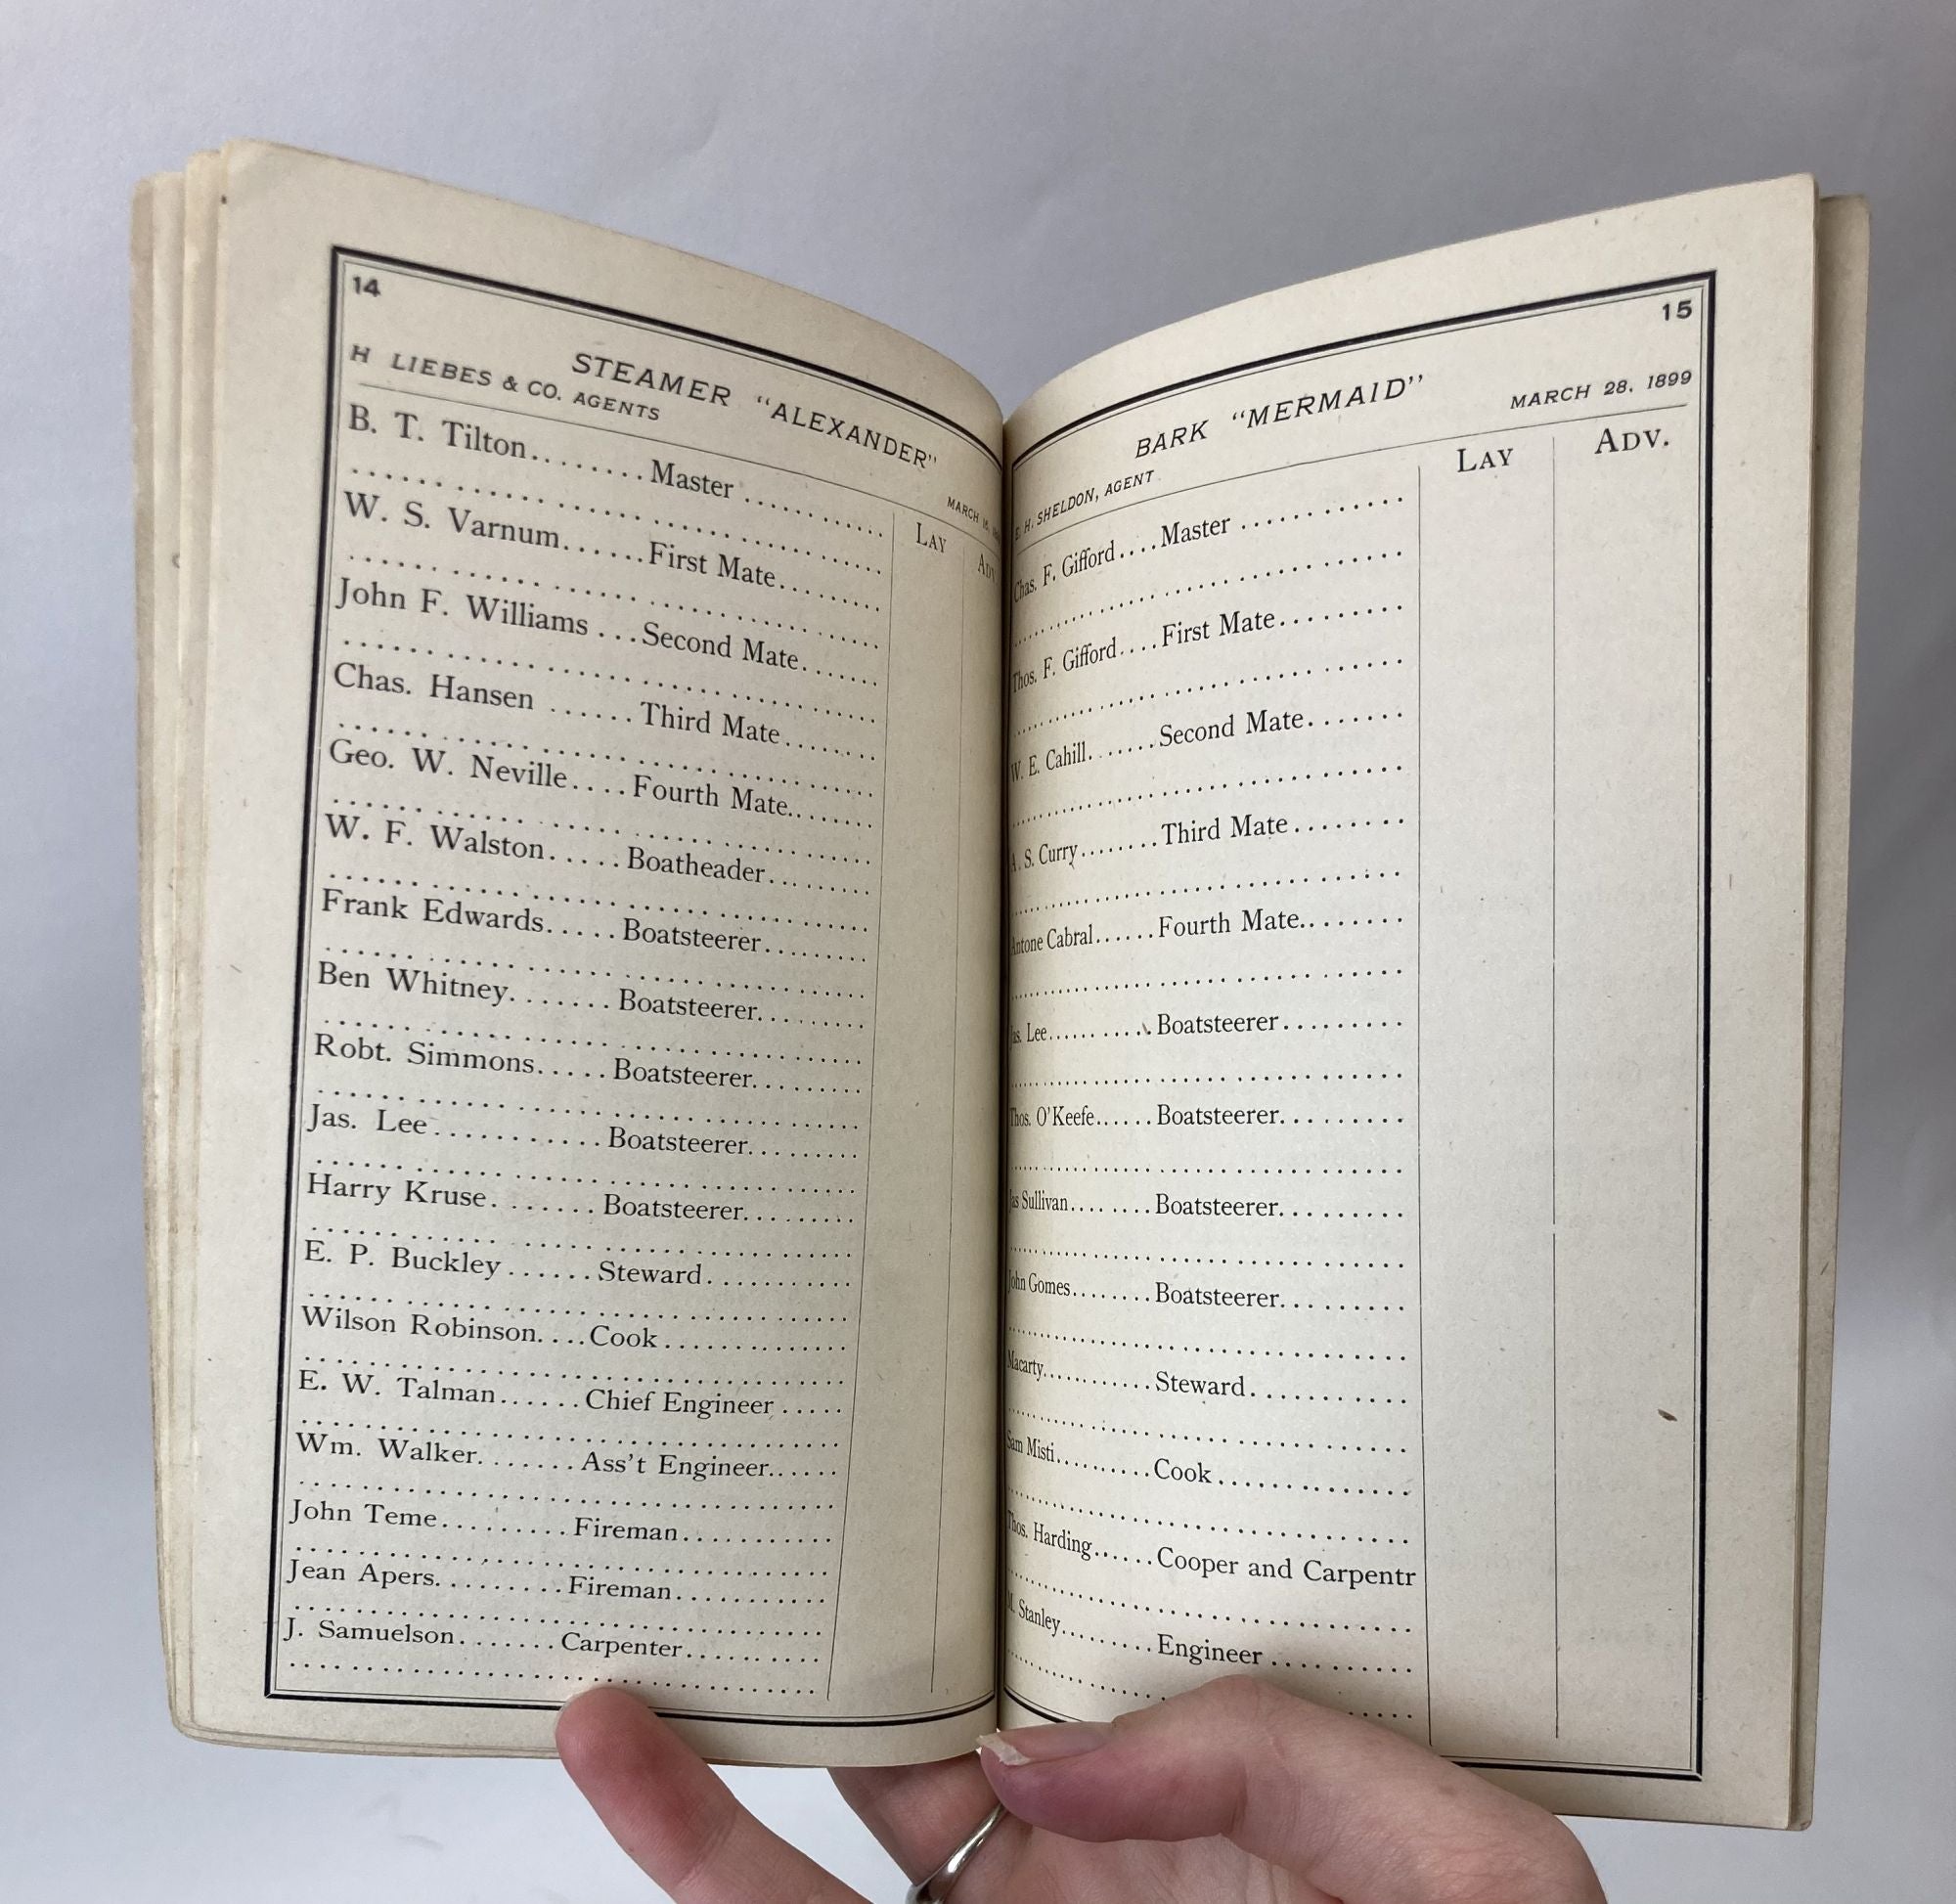 14
STEAMER "ALEXANDER"
H LIEBES & CO. AGENTS
MARCH
LAY ADV
B. T. Tilton........Master..........
W. S. Varnum......First Mate........
John F. Williams...Second Mate.......
Chas. Hansen......Third Mate........
Geo. W. Neville....Fourth Mate........
W. F. Walston.....Boatheader.........
Frank Edwards.....Boatsteerer.........
Ben Whitney.......Boatsteerer.........
Robt. Simmons.....Boatsteerer.........
Jas. Lee...........Boatsteerer.........
Harry Kruse.......Boatsteerer.........
E. P. Buckley......Steward...........
Wilson Robinson....Cook.............
E. W. Talman......Chief Engineer.....
Wm. Walker.......Ass't Engineer......
John Teme.........Fireman...........
Jean Apers.........Fireman...........
J. Samuelson.......Carpenter..........
15
BARK "MERMAID"
H. SHELDON, AGENT
MARCH 28. 1899
LAY ADV.
Chas. F. Gifford....Master............
Thos. F. Gifford....First Mate.........
W. E. Cahill.......Second Mate.......
A. S. Curry........Third Mate........
Antone Cabral......Fourth Mate........
Jas. Lee..........Boatsteerer.........
Thos. O'Keefe......Boatsteerer.........
Jas Sullivan........Boatsteerer.........
John Gomes........Boatsteerer.........
Macarty...........Steward...........
Sam Misti..........Cook.............
Thos. Harding......Cooper and Carpentr
Stanley.........Engineer..........